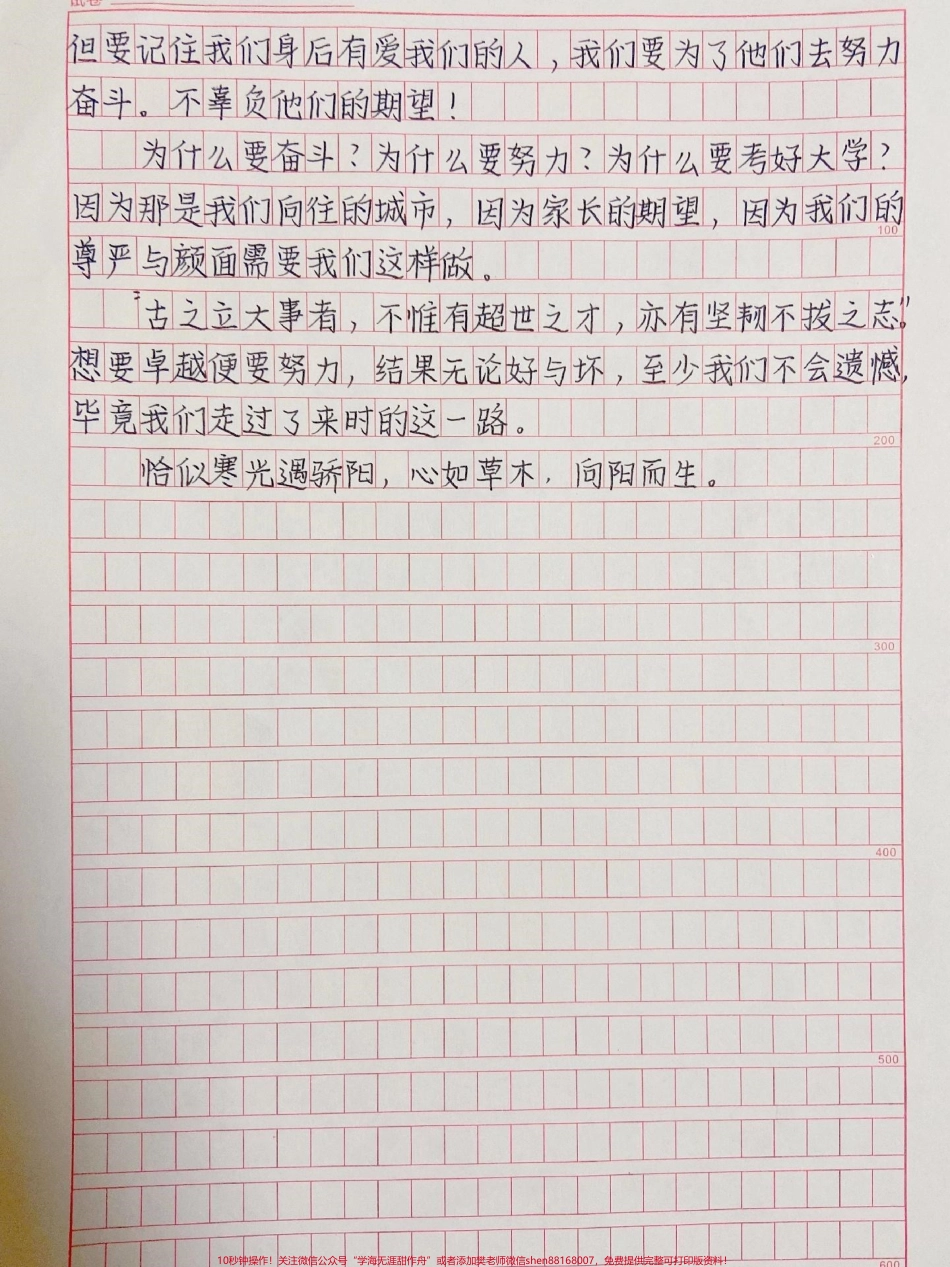 试卷
但要记住我们身后有爱我们的人，我们要为了他们去努力
奋斗。不辜负他们的期望！
为什么要奋斗？为什么要努力？为什么要考好大学？
因为那是我们向往的城市，因为家长的期望，因为我们的
100
尊严与颜面需要我们这样做。
“古之立大事者，不惟有超世之才，亦有坚韧不拔之志”。
想要卓越便要努力，结果无论好与坏，至少我们不会遗憾，
毕竟我们走过了来时的这一路。
200
恰似寒光遇骄阳，心如草木，向阳而生。
300
400
500
600
10秒钟操作！关注微信公众号“学海无涯甜作舟”或者添加樊老师微信shen88168007，免费提供完整可打印版资料！